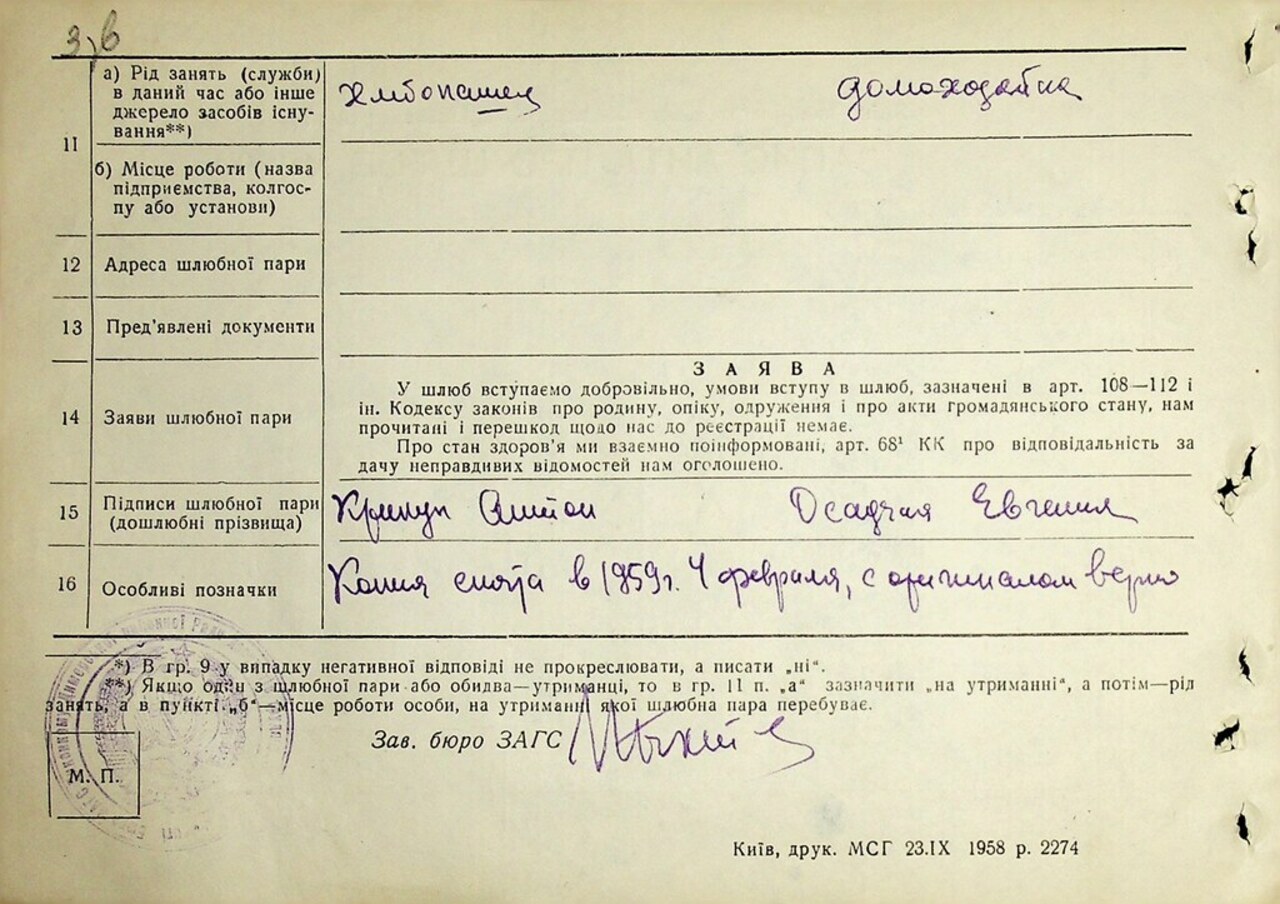 З, в
11
а) Рід занять (служби)
в даний час або інше
джерело засобів існу-
вання**)
хлібопашец
домохозяйка
б) Місце роботи (назва
підприємства, колгос-
пу або установи)
12
Адреса шлюбної пари
13
Пред'явлені документи
14
Заяви шлюбної пари
ЗАЯВА
У шлюб вступаємо добровільно, умови вступу в шлюб, зазначені в арт. 108—112 і
ін. Кодексу законів про родину, опіку, одруження і про акти громадянського стану, нам
прочитані і перешкод щодо нас до реєстрації немає.
Про стан здоров'я ми взаємно поінформовані, арт. 68¹ КК про відповідальність за
дачу неправдивих відомостей нам оголошено.
15
Підписи шлюбної пари
(дошлюбні прізвища)
Антон
Осадчая Евгения
16
Особливі позначки
Копия снята в 1959г. 4 февраля, с оригиналом верно
*) В гр. 9 у випадку негативної відповіді не прокреслювати, а писати „ні“.
**) Якщо один з шлюбної пари або обидва—утриманці, то в гр. 11 п. „а“ зазначити „на утриманні“, а потім—рід
занять, а в пункті „б“—місце роботи особи, на утриманні якої шлюбна пара перебуває.
Зав. бюро ЗАГС
М. П.
Київ, друк. МСГ 23.IX 1958 р. 2274